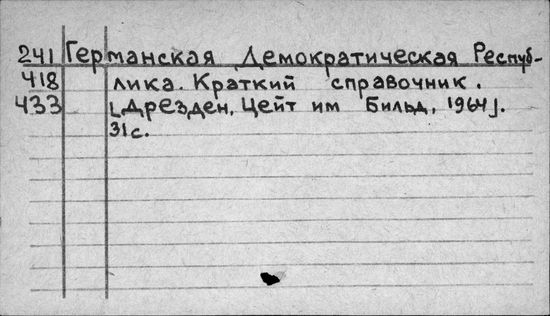 241 Германская Демократическая Респуб-
418 лика. Краткий справочник.
433 [Дрезден, Цейт им Бильд, 1964].
31с.